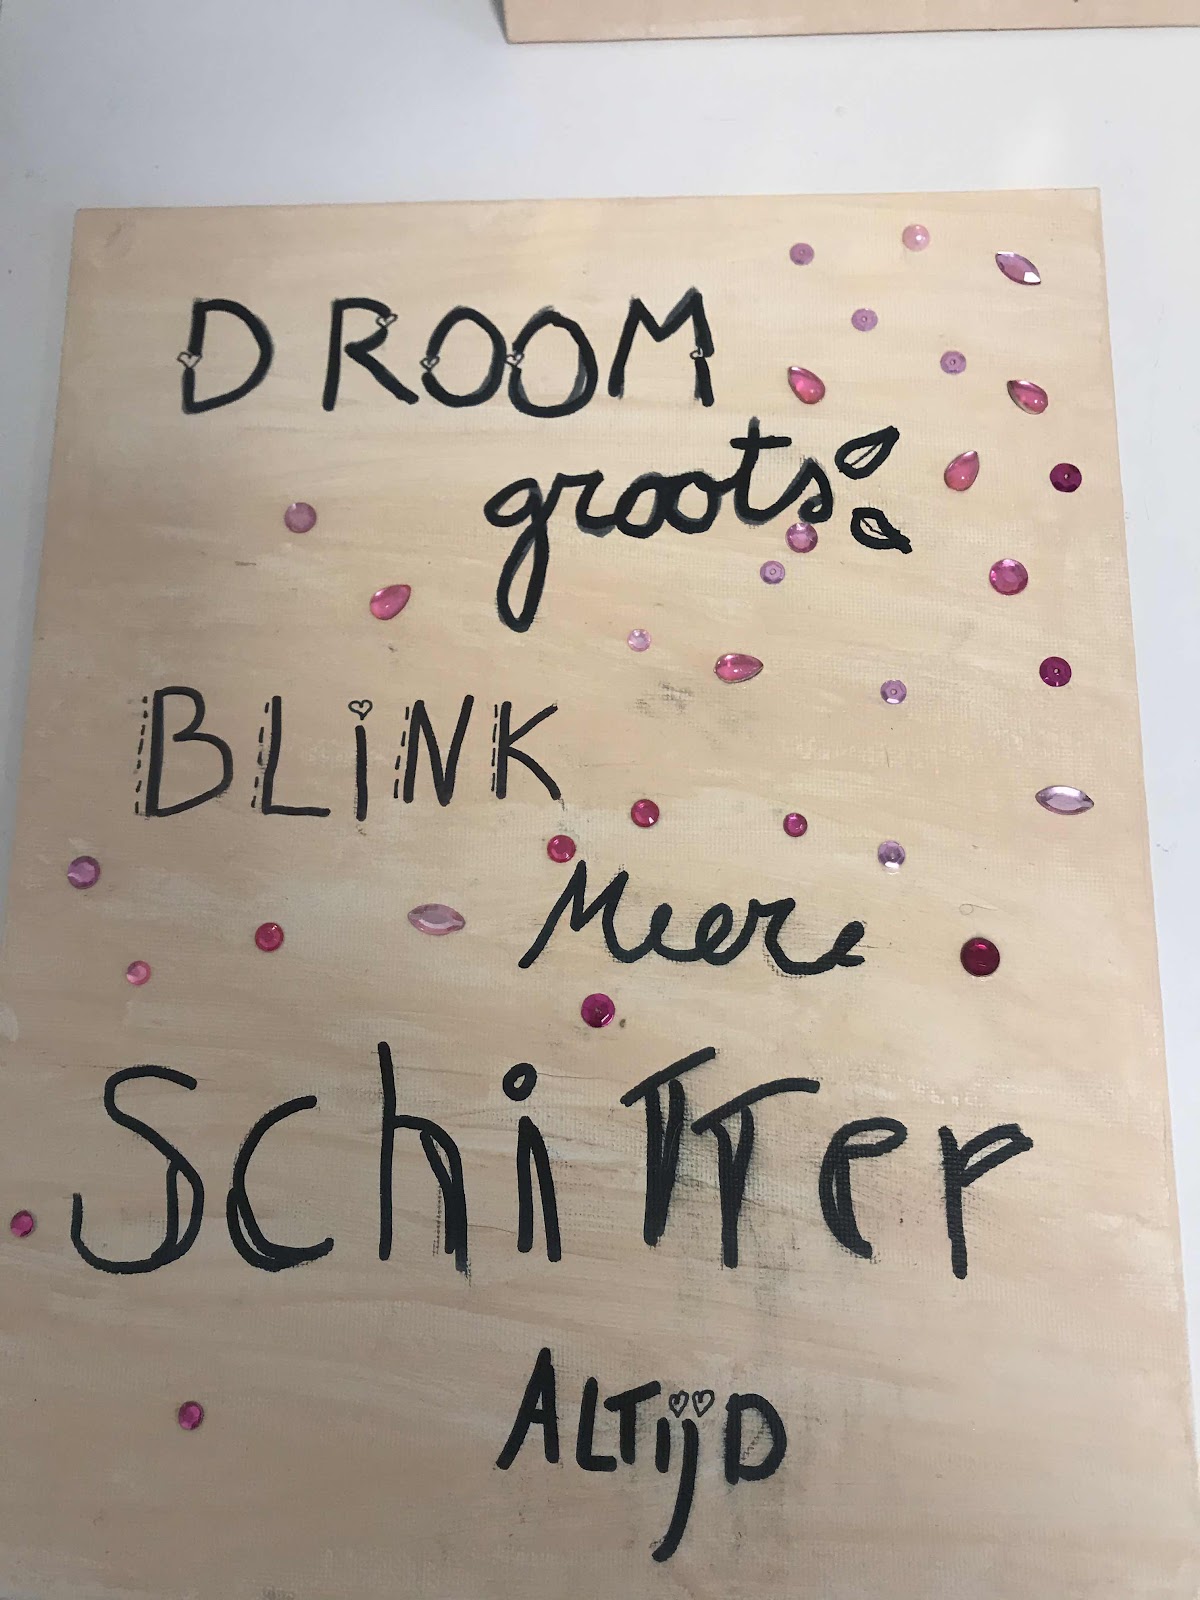 DROOM
groots
BLiNK
Meer
SchiTTer
ALTijD